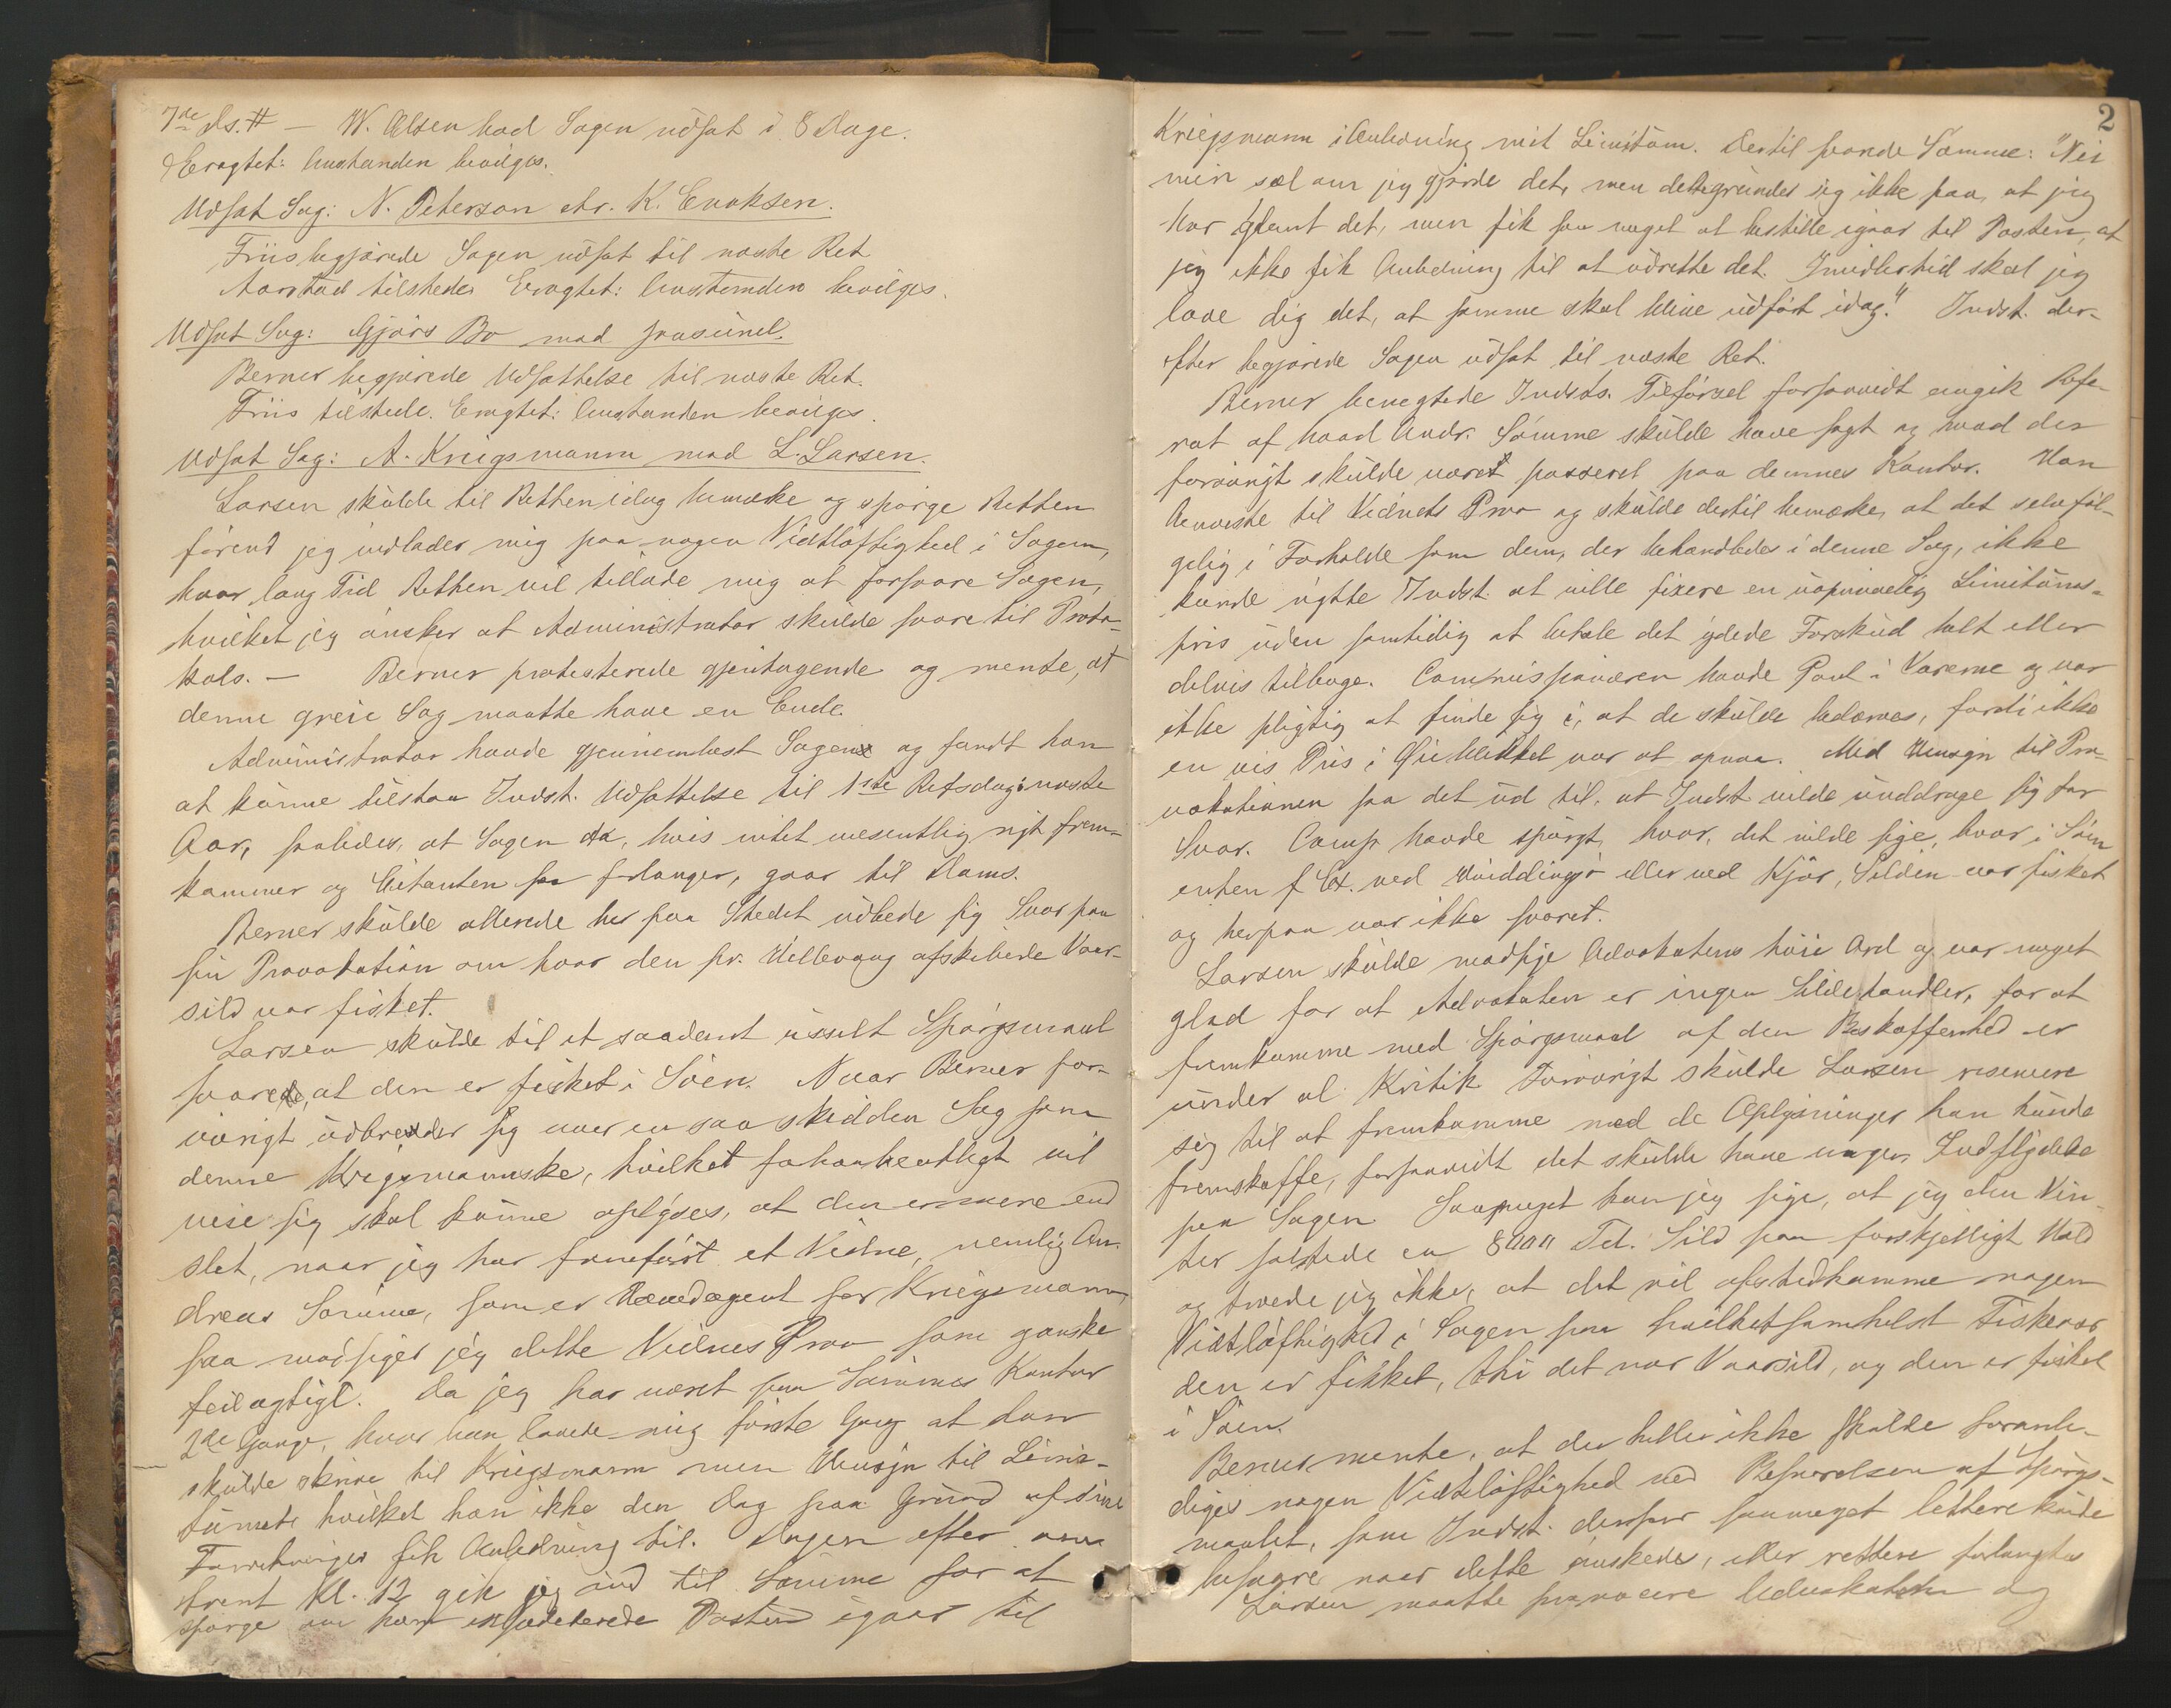 7de Ds. # — W. Olsen bad Sagen udsat i 8 Dage.
Eragtet: Anstanden bevilges.
Udsat Sag: N. Peterson ctr. K. Enoksen.
Friis begjærede Sagen udsat til næste Ret
Aarstad tilstede. Eragtet: Anstanden bevilges.
Udsat Sag: Gjørs Bo mod
Berner begjærede Udsættelse til næste Ret.
Friis tilstede. Eragtet: Anstanden bevilges.
Udsat Sag: A. Kriegsmann mod L. Larsen.
Larsen skulde til Retten idag bemærke og spørge Retten
førend jeg indlader mig paa nogen Vidtløftighed i Sagen,
hvor lang Tid Retten vil tillade mig at forsvare Sagen,
hvilket jeg ønsker at Administrator skulde svare til Proto-
kols. — Berner protesterede gjentagende og mente, at
denne greie Sag maatte have en Ende.
Administrator havde gjennemlæst Sagen og fandt han
at kunne tilstaa Indst. Udsættelse til 1ste Retsdag i næste
Aar, saaledes, at Sagen da, hvis intet væsentlig nyt frem-
kommer og Citanten saa forlanger, gaar til Doms.
Berner skulde allerede her paa Stedet udbede sig Svar paa
sin Provokation om hvor den pr. Hillevaag afskibede Vaar-
sild var fisket.
Larsen skulde til et saadant usselt Spørgsmaal
svare, at den er fisket i Søen. Naar Berner for-
øvrigt udbreder sig over en saa skidden Sag som
denne Kriegsmannske, hvilket forhaabentligt vil
vise sig skal kunne oplyses, at den er mere end
slet, naar jeg har fremført et Vidne, nemlig An-
dreas Sømme, som er Hovedagent for Kriegsmann,
saa modsiger jeg dette Vidnes Prov som ganske
feilagtigt. Da jeg har været paa Sømmes Kontor
2de Gange, hvor han lovede mig første Gang at han
skulde skrive til Kriegsmann men Hensyn til Limi-
tumet hvilket han ikke den Dag paa Grund af sine
Forretninger fik Anledning til. Dagen efter om-
trent Kl. 12 gik jeg ind til Sømme for at
spørge om han expederede Posten igaar til
2
Kriegsmann i Anledning mit Limitum. Dertil svarede Sømme: "Nei
min sæl om jeg gjorde det, men det begrunder sig ikke paa, at jeg
har glemt det, men fik saa meget at bestille igaar til Posten, at
jeg ikke fik Anledning til at udrette det. Imidlertid skal jeg
love dig det, at samme skal blive udført idag." Indst. der-
efter begjærede Sagen udsat til næste Ret.
Berner benegtede Indsts. Tilførsel forsaavidt angik Refe-
rat af hvad Andr. Sømme skulde have sagt og hvad der
forøvrigt skulde været passeret paa dennes Kontor. Han
henviste til Vidnets Prov og skulde dertil bemærke, at det selvføl-
gelig i Forholde som dem, der behandledes i denne Sag, ikke
kunde nytte Indst. at ville fixere en uopnaaelig Limitums-
pris uden samtidig at betale det ydede Forskud helt eller
delvis tilbage. Commissionæren havde Pant i Varerne og var
ikke pligtig at finde sig i, at de skulde bedærves, fordi ikke
en vis Pris i Øieblikket var at opnaa. Med Hensyn til Pro-
vokationen saa det ud til, at Indst. vilde unddrage sig for
Svar. Comp. havde spørgt, hvor, det vilde sige, hvor i Søen
enten f. Ex. ved Hviddingsø eller ved Kjør, Silden var fisket
og herpaa var ikke svaret.
Larsen skulde modsige Advokatens høie Ord og var meget
glad for at Advokaten er ingen Sildehandler, for at
fremkomme med Spørgsmaal af den Beskaffenhed er
under al Kritik. Forøvrigt skulde Larsen reservere
sig til at fremkomme med de Oplysninger han kunde
fremskaffe, forsaavidt det skulde have nogen Indflydelse
paa Sagen. Saameget kan jeg sige, at jeg den Vin-
ter saltede ca 8000 Td. Sild paa forskjelligt Hold
og troede jeg ikke, at det vil afstedkomme nogen
Vidtløftighed i Sagen paa hvilketsomhelst Fiskevær
den er fisket, thi det var Vaarsild, og den er fisket
i Søen.
Berner mente, at der heller ikke skulde foranle-
diges nogen Vidtløftighed ved Besvarelsen af Spørgs-
maalet, som Indst. derfor saameget lettere kunde
besvare naar dette ønskedes, eller rettere forlangtes
Larsen maatte Advokaten og